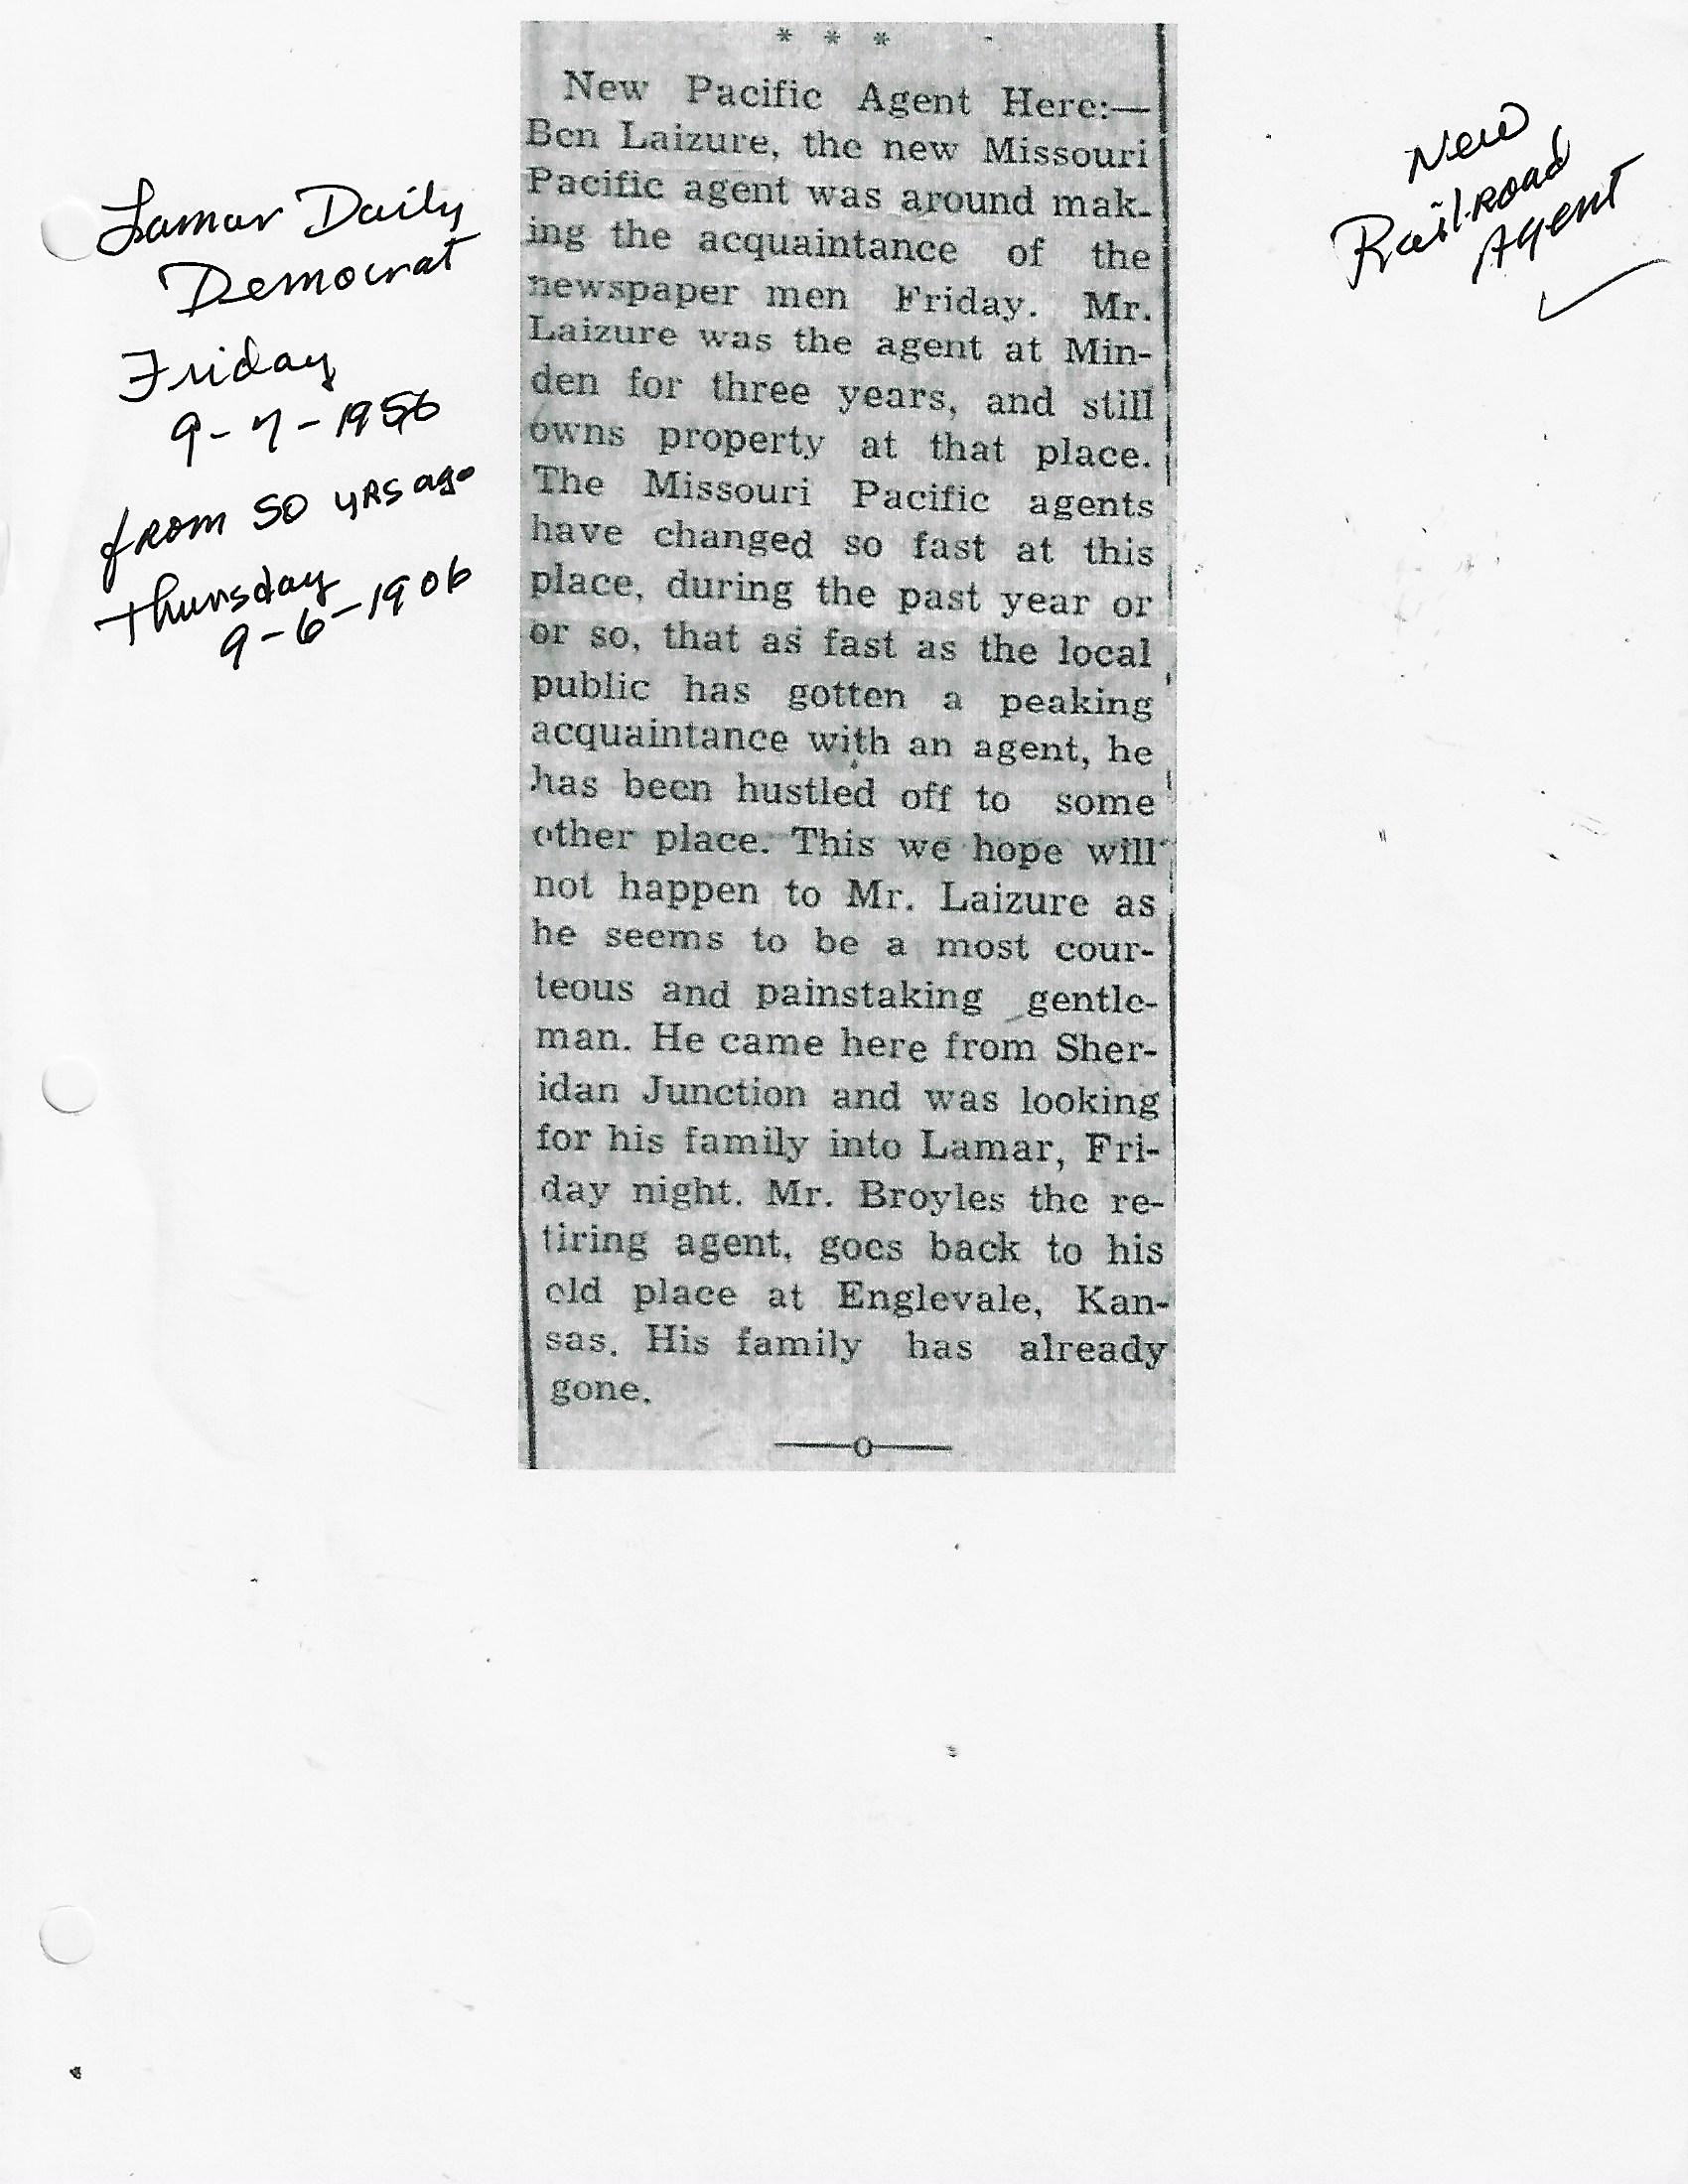 Lamar Daily
Democrat
Friday
9-7-1956
from 50 yrs ago
Thursday
9-6-1906
New
Railroad
Agent
* * *
New Pacific Agent Here:—
Ben Laizure, the new Missouri
Pacific agent was around mak-
ing the acquaintance of the
newspaper men Friday. Mr.
Laizure was the agent at Min-
den for three years, and still
owns property at that place.
The Missouri Pacific agents
have changed so fast at this
place, during the past year or
or so, that as fast as the local
public has gotten a peaking
acquaintance with an agent, he
has been hustled off to some
other place. This we hope will
not happen to Mr. Laizure as
he seems to be a most cour-
teous and painstaking gentle-
man. He came here from Sher-
idan Junction and was looking
for his family into Lamar, Fri-
day night. Mr. Broyles the re-
tiring agent, goes back to his
old place at Englevale, Kan-
sas. His family has already
gone.
——o——